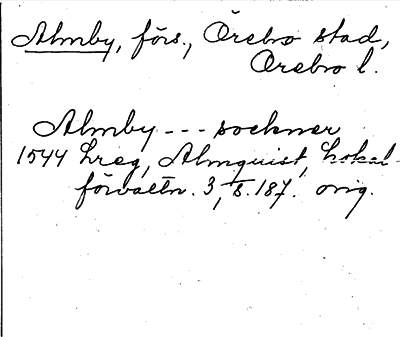 Almby, förs., Örebro stad,
Örebro l.
Almby --- socknar
1544 Lreg, Almquist, Lokal-
förvaltn. 3, s. 187. orig.